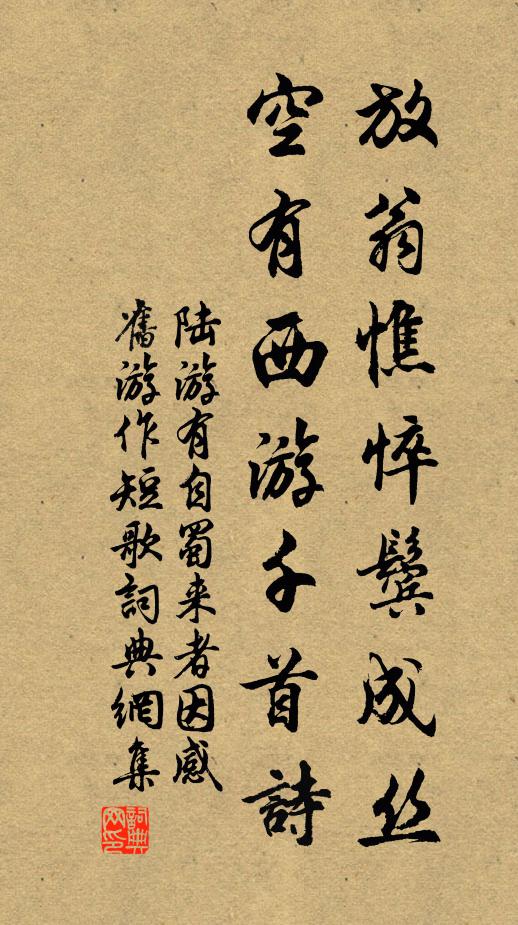 放翁憔悴鬓成丝
空有西游千首詩
陆游有自蜀来者因感
舊游作短歌詞典網集
詞典网印